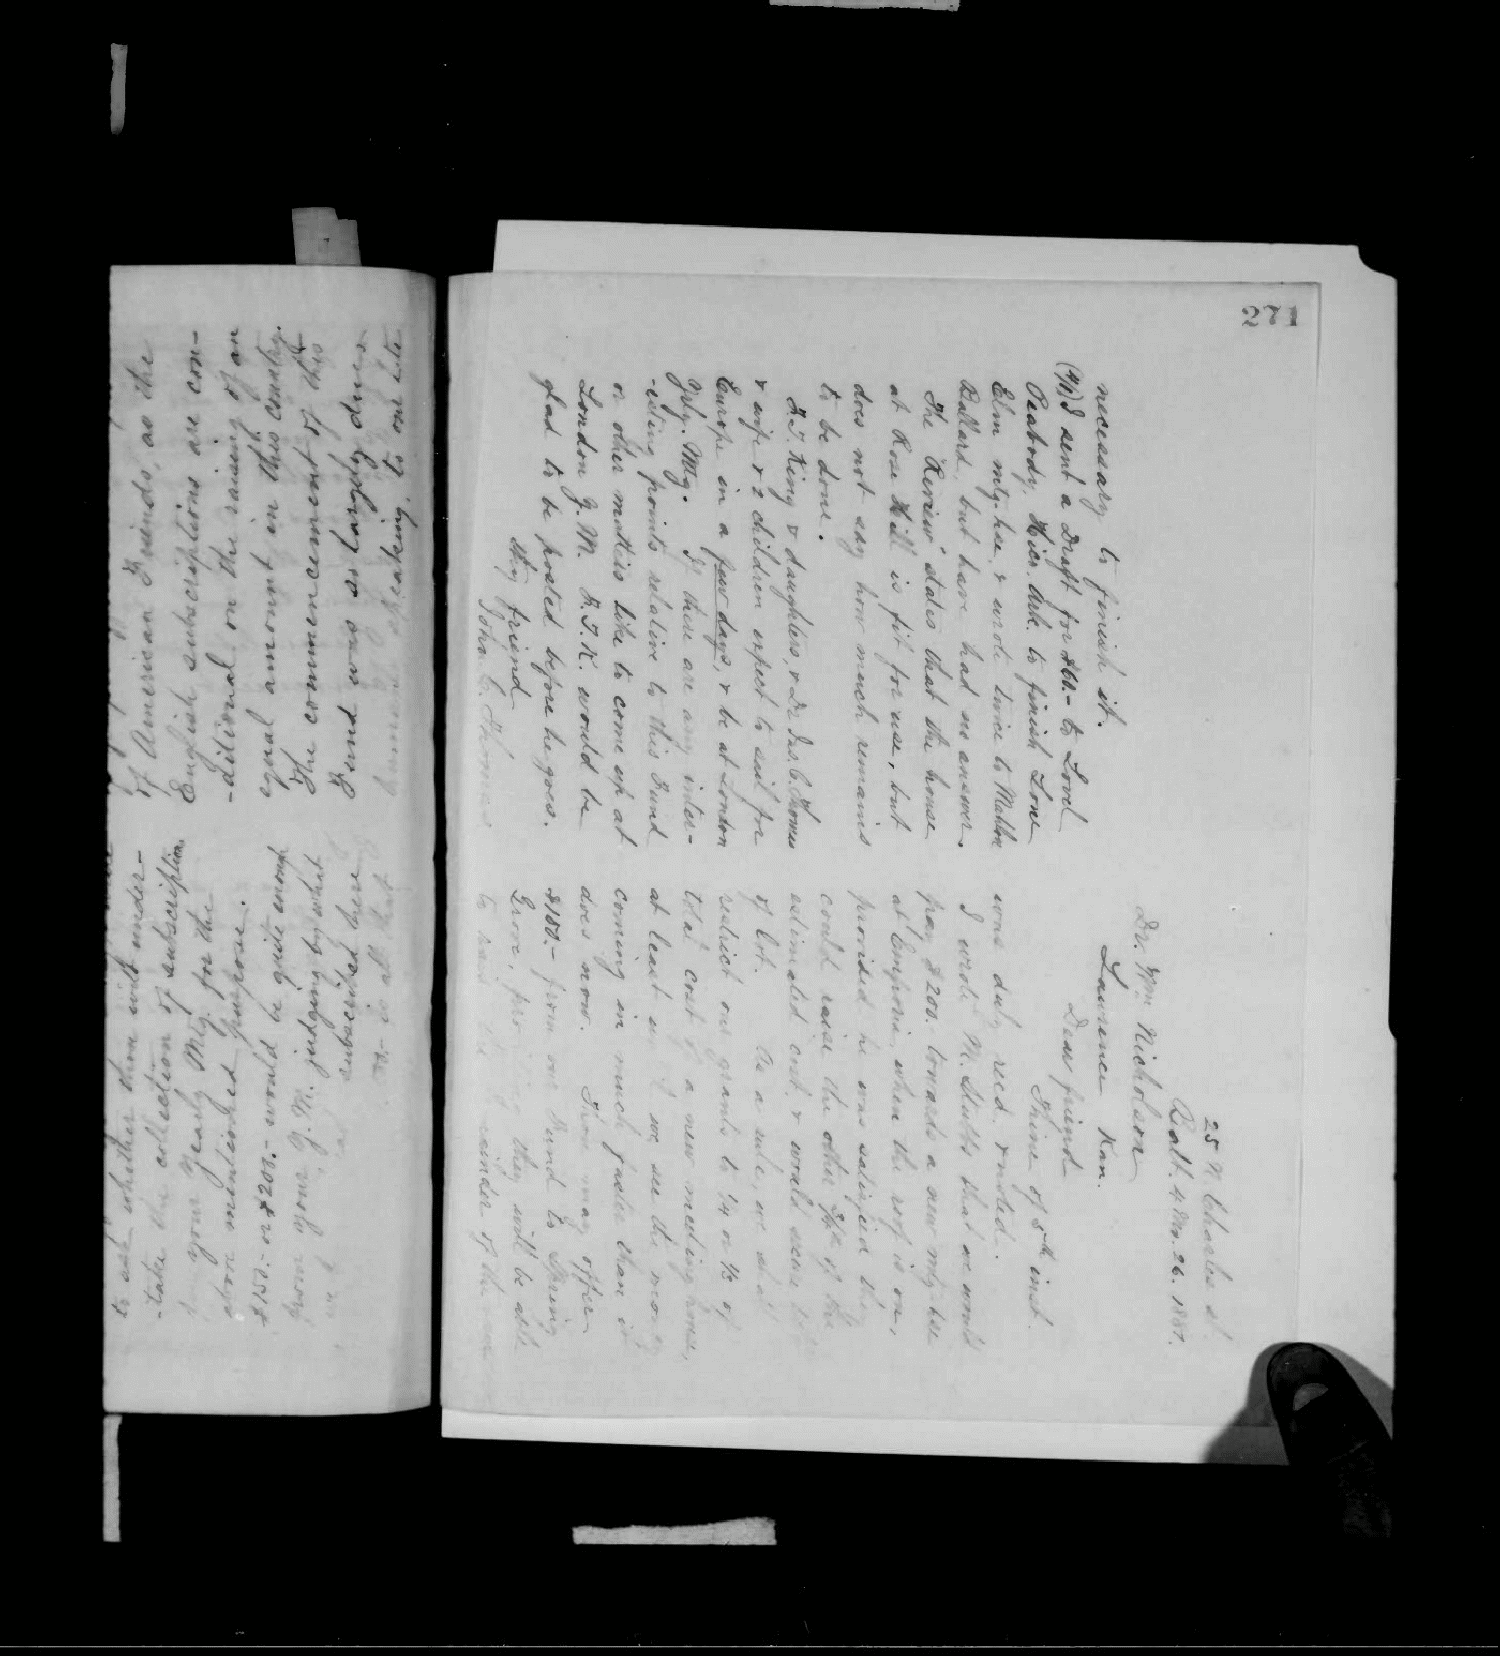 271
necessary to finish it.
(4/1) I sent a Draft for $60.- to Lovel
Peabody, Hier. Ark. to finish Lone
Elm mtg. hse. & wrote twice to Mahlon
Ballard, but have had no answer.
The "Review" states that the house
at Rose Hill is fit for use, but
does not say how much remains
to be done.
F. T. King & daughters, & Dr. Jas. C. Thomas
& wife & 2 children expect to sail for
Europe in a few days, & be at London
Yrly. Mtg. If there are any inter-
-esting points relative to this Fund
or other matters like to come up at
London Y. M. F. T. K. would be
glad to be posted before he goes.
thy friend
John C. Thomas
25 N. Charles St.
Balt. 4 Mo. 26. 1887.
Dr. Wm. Nicholson
Lawrence Kan.
Dear friend
Thine of 5th inst.
was duly recd. & noted.
I wrote M. Stubbs that we would
pay $200. towards a new mtg. hse
at Emporia, when the roof is on,
provided he was satisfied they
could raise the other 3/4 of the
estimated cost & would
of lot. As a rule, we shall
restrict our grants to 1/4 or 1/3 of
total cost of a new meeting house,
at least until we see the money
coming in much faster than it
does now. Thou may offer
$100.- from our Fund to Spring
Grove, they will be able
to raise the remainder of the
of American Friends, as the
English subscriptions are con-
-ditional on the raising of an
equal amount in this country.
The commencement of this
Fund was so largely due
speaking, to our late
to ask whether thou will under-
-take the collection of subscriptions
your Yearly Mtg. for the
above mentioned purpose.
$150.- or $200.- would be quite enough
from your Y. M. judging by what
subscribed here
is all that